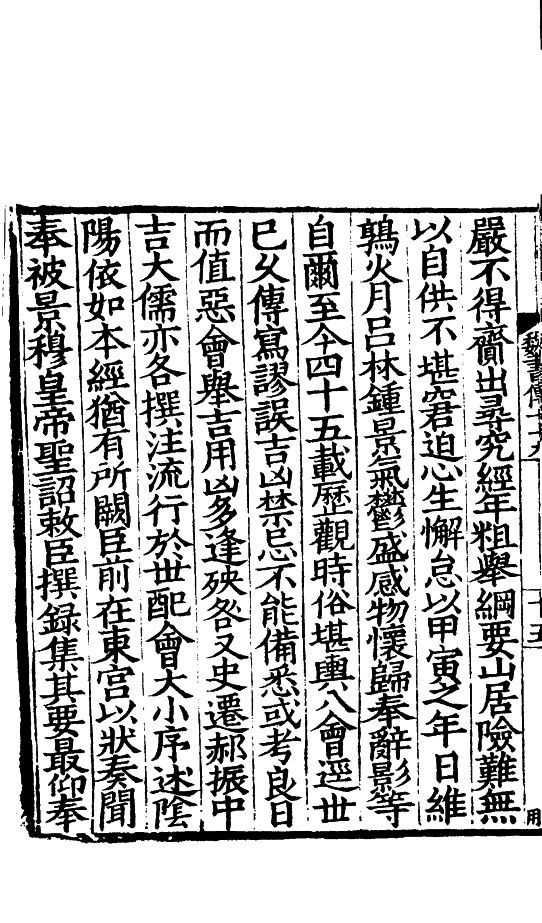 嚴不得齎出尋究經年粗舉綱要山居險難無
以自供不堪窘迫心生懈怠以甲寅之年日維
鶉火月吕林鍾景氣鬱盛感物懷歸奉辭影等
自爾至今四十五載歷觀時俗堪輿八會逕世
已久傳寫謬誤吉凶禁忌不能備悉或考良日
而值惡會舉吉用凶多逢殃咎又史遷郝振中
吉大儒亦各撰注流行於世配會大小序述隂
陽依如本經猶有所闕臣前在東宮以狀奏聞
奉被景穆皇帝聖詔敕臣撰録集其要最仰奉